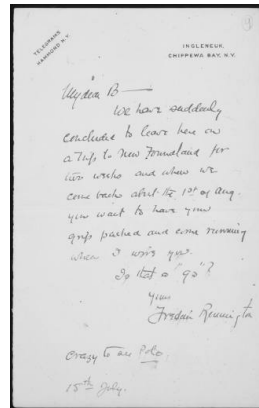 TELEGRAMS
HAMMOND N.Y.
INGLENEUK,
CHIPPEWA BAY, N.Y.
My dear B—
We have suddenly
concluded to leave here on
a trip to New Foundland for
two weeks and when we
come back about the 1st of Aug.
you want to have your
grip packed and come running
when I wire you.
Is that a "go"?
Yours
Frederic Remington
Crazy to see Polo.
15th July.